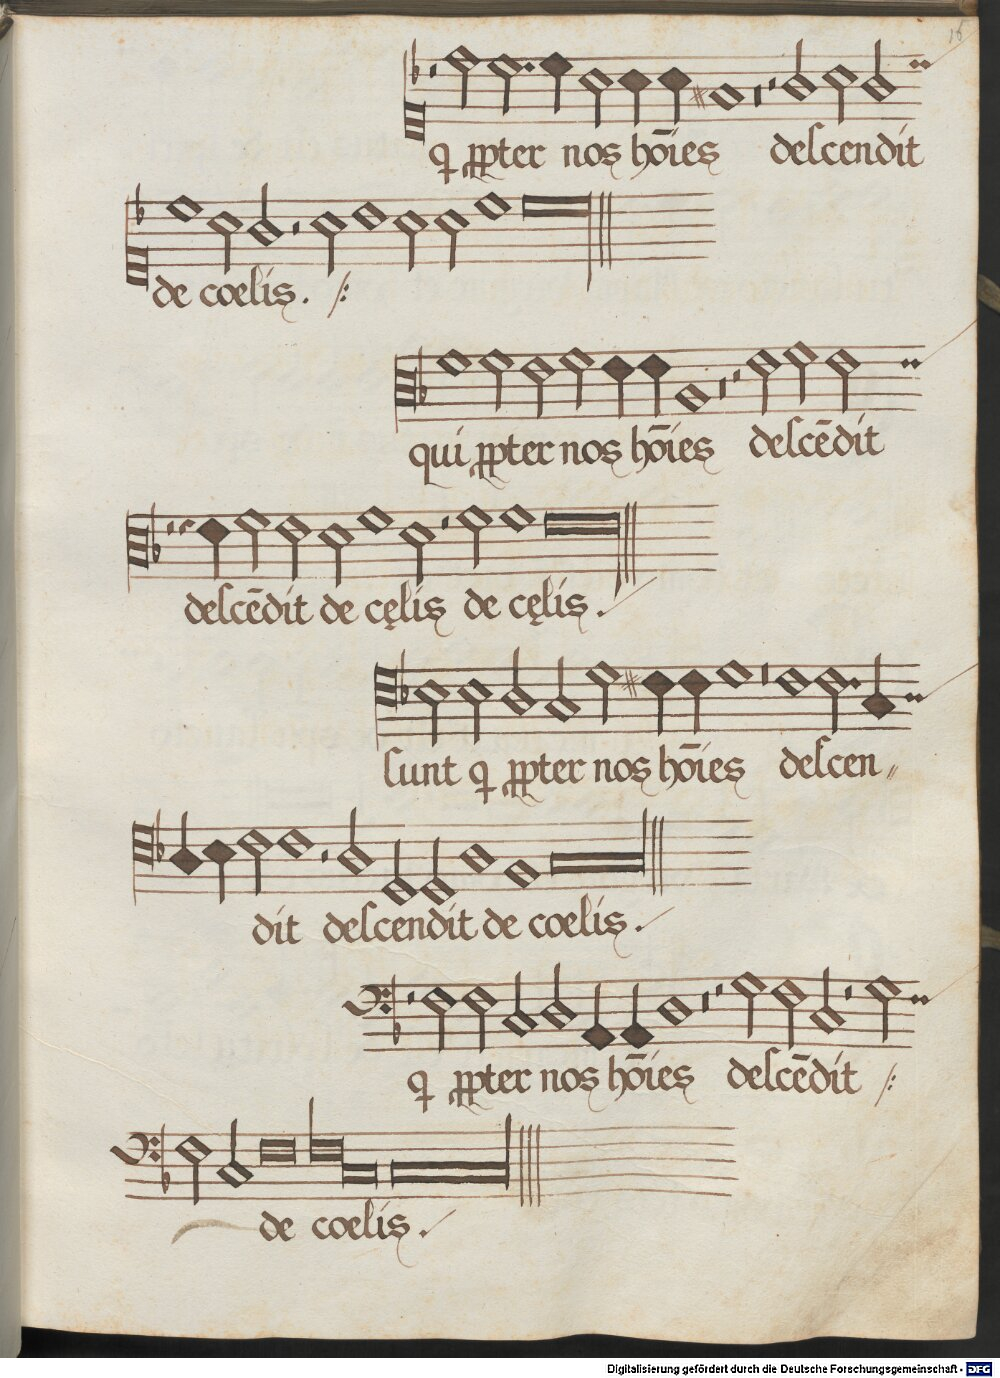 16
q ꝓpter nos hōies descendit
de coelis. /:
qui ꝓpter nos hōies descēdit
descēdit de cęlis de cęlis.
sunt q ꝓpter nos hōies descen〃
dit descendit de coelis.
q ꝓpter nos hōies descēdit /:
de coelis.
Digitalisierung gefördert durch die Deutsche Forschungsgemeinschaft - DFG